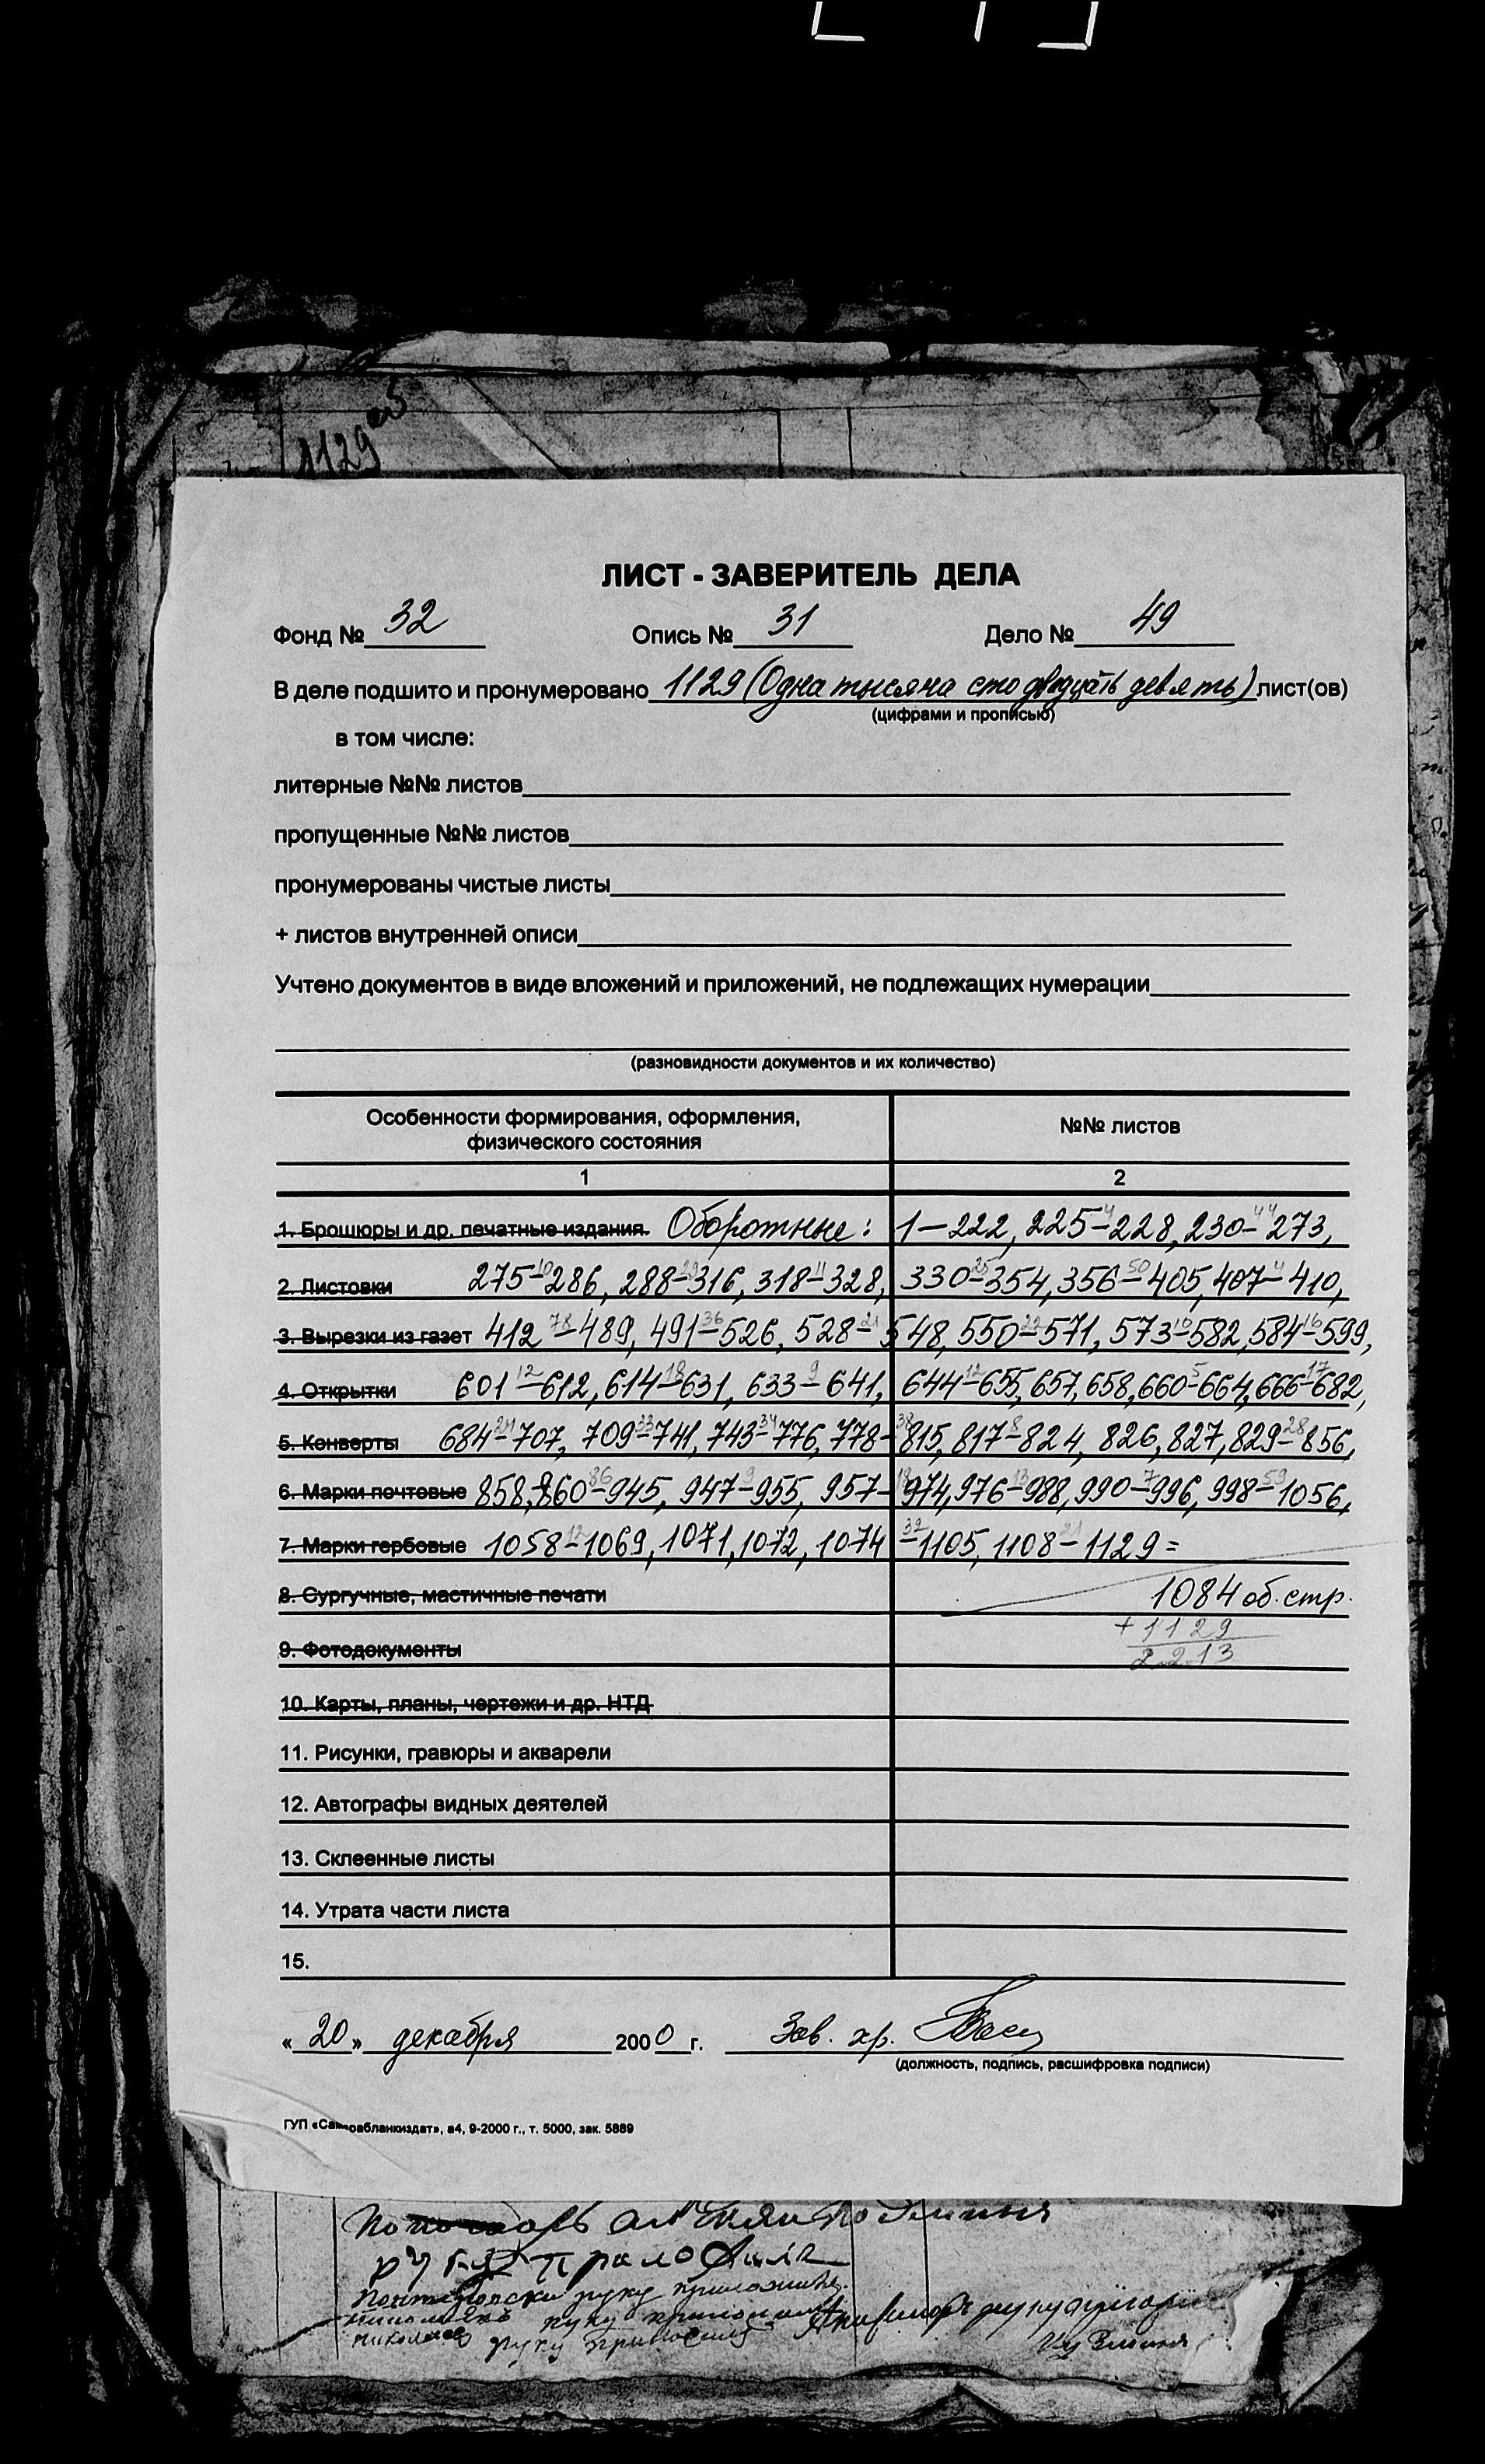 1129 об
ЛИСТ - ЗАВЕРИТЕЛЬ ДЕЛА
Фонд № 32 Опись № 31 Дело № 49
В деле подшито и пронумеровано 1129 (Одна тысяча сто двадцать девять) лист(ов)
(цифрами и прописью)
в том числе:
литерные №№ листов
пропущенные №№ листов
пронумерованы чистые листы
+ листов внутренней описи
Учтено документов в виде вложений и приложений, не подлежащих нумерации
(разновидности документов и их количество)
Особенности формирования, оформления, физического состояния №№ листов
1 2
1. Брошюры и др. печатные издания. Оборотные: 1-222, 225-228, 230-273,
2. Листовки 275-286, 288-316, 318-328, 330-354, 356-405, 407-410,
3. Вырезки из газет 412-489, 491-526, 528-548, 550-571, 573-582, 584-599,
4. Открытки 601-612, 614-631, 633-641, 644-655, 657, 658, 660-664, 666-682,
5. Конверты 684-707, 709-741, 743-776, 778-815, 817-824, 826, 827, 829-856,
6. Марки почтовые 858, 860-945, 947-955, 957-974, 976-988, 990-996, 998-1056,
7. Марки гербовые 1058-1069, 1071, 1072, 1074-1105, 1108-1129 =
8. Сургучные, мастичные печати 1084 об. стр.
+ 1129
9. Фотодокументы 2213
10. Карты, планы, чертежи и др. НТД
11. Рисунки, гравюры и акварели
12. Автографы видных деятелей
13. Склеенные листы
14. Утрата части листа
15.
«20» декабря 2000 г. Зав. хр.
(должность, подпись, расшифровка подписи)
ГУП «Самарабланкиздат», а4, 9-2000 г., т. 5000, зак. 5889
руку
руку